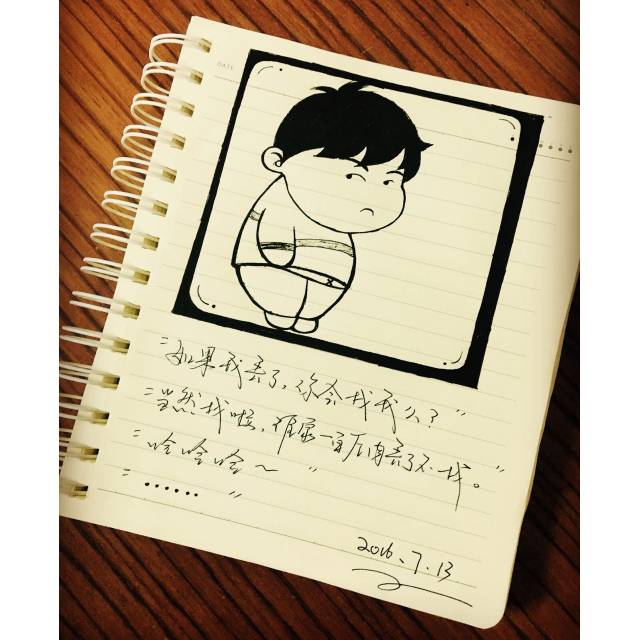 DATE
"如果我丢了,你会找我么?"
"当然找啦,谁家一百斤肉丢了不找。"
"哈哈哈~"
"......"
2016.7.13